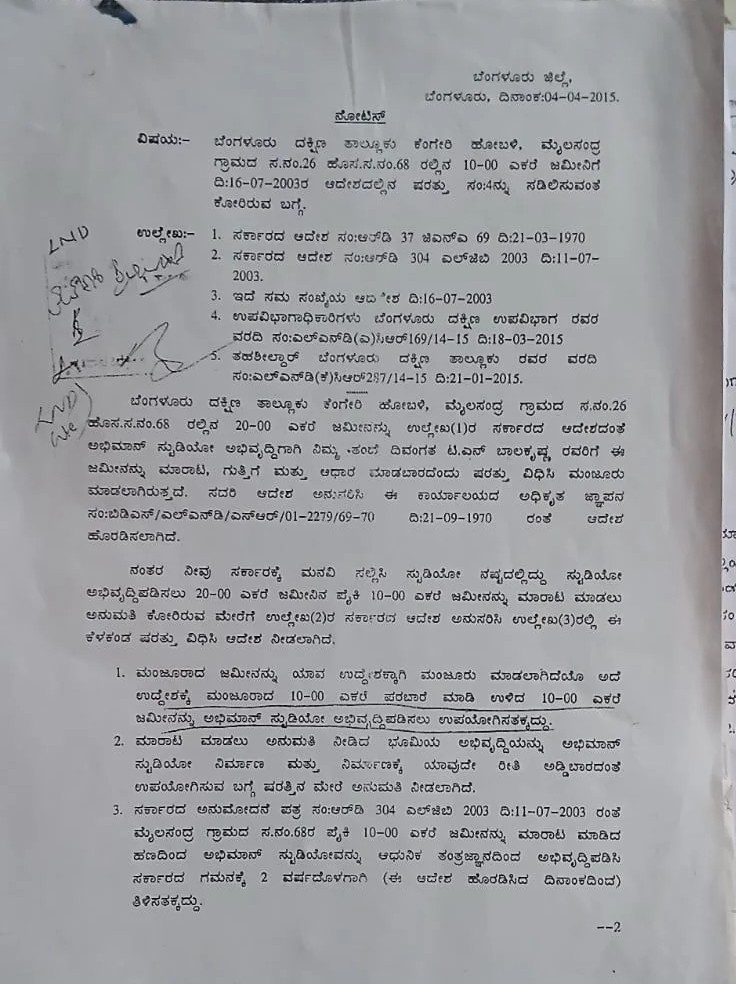 ಬೆಂಗಳೂರು ಜಿಲ್ಲೆ,
ಬೆಂಗಳೂರು, ದಿನಾಂಕ:04-04-2015.
ನೋಟಿಸ್
ವಿಷಯ:- ಬೆಂಗಳೂರು ದಕ್ಷಿಣ ತಾಲ್ಲೂಕು ಕೆಂಗೇರಿ ಹೋಬಳಿ, ಮೈಲಸಂದ್ರ
ಗ್ರಾಮದ ಸ.ನಂ.26 ಹೊಸ.ಸ.ನಂ.68 ರಲ್ಲಿನ 10-00 ಎಕರೆ ಜಮೀನಿಗೆ
ದಿ:16-07-2003ರ ಆದೇಶದಲ್ಲಿನ ಷರತ್ತು ಸಂ:4ನ್ನು ಸಡಿಲಿಸುವಂತೆ
ಕೋರಿರುವ ಬಗ್ಗೆ.
ಉಲ್ಲೇಖ:- 1. ಸರ್ಕಾರದ ಆದೇಶ ಸಂ:ಆರ್‌ಡಿ 37 ಜಿಎನ್‌ಎ 69 ದಿ:21-03-1970
2. ಸರ್ಕಾರದ ಆದೇಶ ಸಂ:ಆರ್‌ಡಿ 304 ಎಲ್‌ಜಿಬಿ 2003 ದಿ:11-07-
2003.
3. ಇದೆ ಸಮ ಸಂಖ್ಯೆಯ ಆದೇಶ ದಿ:16-07-2003
4. ಉಪವಿಭಾಗಾಧಿಕಾರಿಗಳು ಬೆಂಗಳೂರು ದಕ್ಷಿಣ ಉಪವಿಭಾಗ ರವರ
ವರದಿ ಸಂ:ಎಲ್‌ಎನ್‌ಡಿ(ಎ)ಸಿಆರ್169/14-15 ದಿ:18-03-2015
5. ತಹಶೀಲ್ದಾರ್ ಬೆಂಗಳೂರು ದಕ್ಷಿಣ ತಾಲ್ಲೂಕು ರವರ ವರದಿ
ಸಂ:ಎಲ್‌ಎನ್‌ಡಿ(ಕೆ)ಸಿಆರ್287/14-15 ದಿ:21-01-2015.
LND
LND
ಬೆಂಗಳೂರು ದಕ್ಷಿಣ ತಾಲ್ಲೂಕು ಕೆಂಗೇರಿ ಹೋಬಳಿ, ಮೈಲಸಂದ್ರ ಗ್ರಾಮದ ಸ.ನಂ.26
ಹೊಸ.ಸ.ನಂ.68 ರಲ್ಲಿನ 20-00 ಎಕರೆ ಜಮೀನನ್ನು ಉಲ್ಲೇಖ(1)ರ ಸರ್ಕಾರದ ಆದೇಶದಂತೆ
ಅಭಿಮಾನ್ ಸ್ಟುಡಿಯೋ ಅಭಿವೃದ್ಧಿಗಾಗಿ ನಿಮ್ಮ ತಂದೆ ದಿವಂಗತ ಟಿ.ಎನ್ ಬಾಲಕೃಷ್ಣ ರವರಿಗೆ ಈ
ಜಮೀನನ್ನು ಮಾರಾಟ, ಗುತ್ತಿಗೆ ಮತ್ತು ಆಧಾರ ಮಾಡಬಾರದೆಂದು ಷರತ್ತು ವಿಧಿಸಿ ಮಂಜೂರು
ಮಾಡಲಾಗಿರುತ್ತದೆ. ಸದರಿ ಆದೇಶ ಅನುಸರಿಸಿ ಈ ಕಾರ್ಯಾಲಯದ ಅಧಿಕೃತ ಜ್ಞಾಪನ
ಸಂ:ಬಿಡಿಎಸ್/ಎಲ್‌ಎನ್‌ಡಿ/ಎಸ್ಆರ್/01-2279/69-70 ದಿ:21-09-1970 ರಂತೆ ಆದೇಶ
ಹೊರಡಿಸಲಾಗಿದೆ.
ನಂತರ ನೀವು ಸರ್ಕಾರಕ್ಕೆ ಮನವಿ ಸಲ್ಲಿಸಿ ಸ್ಟುಡಿಯೋ ನಷ್ಟದಲ್ಲಿದ್ದು ಸ್ಟುಡಿಯೋ
ಅಭಿವೃದ್ಧಿಪಡಿಸಲು 20-00 ಎಕರೆ ಜಮೀನಿನ ಪೈಕಿ 10-00 ಎಕರೆ ಜಮೀನನ್ನು ಮಾರಾಟ ಮಾಡಲು
ಅನುಮತಿ ಕೋರಿರುವ ಮೇರೆಗೆ ಉಲ್ಲೇಖ(2)ರ ಸರ್ಕಾರದ ಆದೇಶ ಅನುಸರಿಸಿ ಉಲ್ಲೇಖ(3)ರಲ್ಲಿ ಈ
ಕೆಳಕಂಡ ಷರತ್ತು ವಿಧಿಸಿ ಆದೇಶ ನೀಡಲಾಗಿದೆ.
1. ಮಂಜೂರಾದ ಜಮೀನನ್ನು ಯಾವ ಉದ್ದೇಶಕ್ಕಾಗಿ ಮಂಜೂರು ಮಾಡಲಾಗಿದೆಯೊ ಅದೆ
ಉದ್ದೇಶಕ್ಕೆ ಮಂಜೂರಾದ 10-00 ಎಕರೆ ಪರಬಾರೆ ಮಾಡಿ ಉಳಿದ 10-00 ಎಕರೆ
ಜಮೀನನ್ನು ಅಭಿಮಾನ್ ಸ್ಟುಡಿಯೋ ಅಭಿವೃದ್ಧಿಪಡಿಸಲು ಉಪಯೋಗಿಸತಕ್ಕದ್ದು.
2. ಮಾರಾಟ ಮಾಡಲು ಅನುಮತಿ ನೀಡಿದ ಭೂಮಿಯ ಅಭಿವೃದ್ಧಿಯನ್ನು ಅಭಿಮಾನ್
ಸ್ಟುಡಿಯೋ ನಿರ್ಮಾಣ ಮತ್ತು ನಿರ್ಮಾಣಕ್ಕೆ ಯಾವುದೇ ರೀತಿ ಅಡ್ಡಿಬಾರದಂತೆ
ಉಪಯೋಗಿಸುವ ಬಗ್ಗೆ ಷರತ್ತಿನ ಮೇರೆ ಅನುಮತಿ ನೀಡಲಾಗಿದೆ.
3. ಸರ್ಕಾರದ ಅನುಮೋದನೆ ಪತ್ರ ಸಂ:ಆರ್‌ಡಿ 304 ಎಲ್‌ಜಿಬಿ 2003 ದಿ:11-07-2003 ರಂತೆ
ಮೈಲಸಂದ್ರ ಗ್ರಾಮದ ಸ.ನಂ.68ರ ಪೈಕಿ 10-00 ಎಕರೆ ಜಮೀನನ್ನು ಮಾರಾಟ ಮಾಡಿದ
ಹಣದಿಂದ ಅಭಿಮಾನ್ ಸ್ಟುಡಿಯೋವನ್ನು ಆಧುನಿಕ ತಂತ್ರಜ್ಞಾನದಿಂದ ಅಭಿವೃದ್ಧಿಪಡಿಸಿ
ಸರ್ಕಾರದ ಗಮನಕ್ಕೆ 2 ವರ್ಷದೊಳಗಾಗಿ (ಈ ಆದೇಶ ಹೊರಡಿಸಿದ ದಿನಾಂಕದಿಂದ)
ತಿಳಿಸತಕ್ಕದ್ದು.
--2